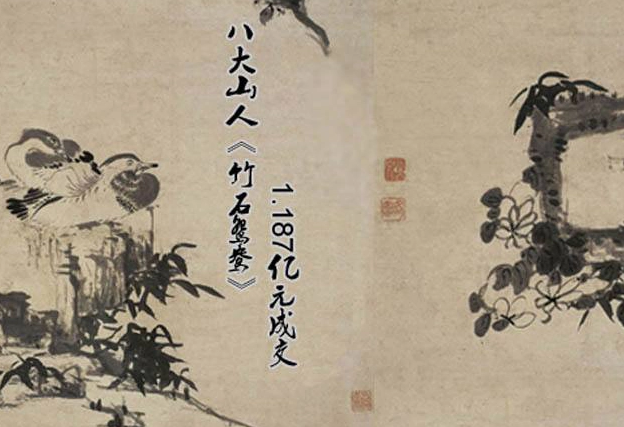 八大山人《竹石鸳鸯》
1.187亿元成交